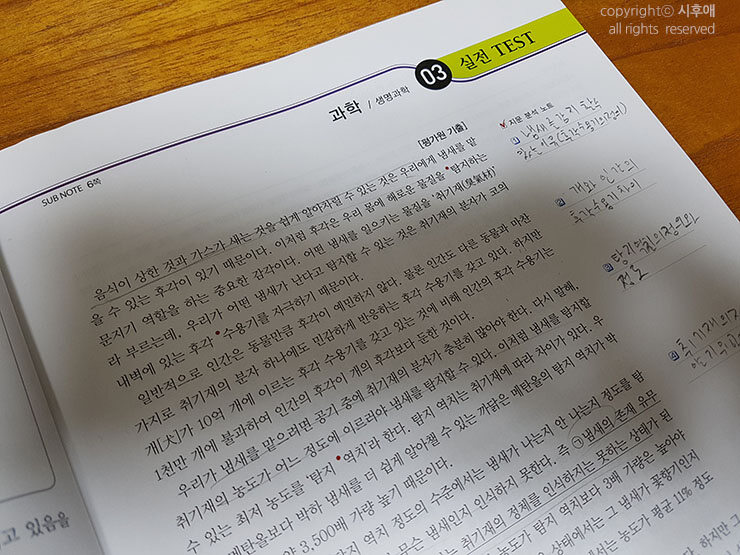 copyrightⓒ 시후애
all rights reserved
03 실전 TEST
과학 / 생명과학
SUB NOTE 6쪽
[평가원 기출]
지문 분석 노트
음식이 상한 것과 가스가 새는 것을 쉽게 알아차릴 수 있는 것은 우리에게 냄새를 맡
을 수 있는 후각이 있기 때문이다. 이처럼 후각은 우리 몸에 해로운 물질을 탐지하는
문지기 역할을 하는 중요한 감각이다. 어떤 냄새를 일으키는 물질을 '취기재(臭氣材)'
라 부르는데, 우리가 어떤 냄새가 난다고 탐지할 수 있는 것은 취기재의 분자가 코의
내벽에 있는 후각 수용기를 자극하기 때문이다.
일반적으로 인간은 동물만큼 후각이 예민하지 않다. 물론 인간도 다른 동물과 마찬
가지로 취기재의 분자 하나에도 민감하게 반응하는 후각 수용기를 갖고 있다. 하지만
개[犬]가 10억 개에 이르는 후각 수용기를 갖고 있는 것에 비해 인간의 후각 수용기는
1천만 개에 불과하여 인간의 후각이 개의 후각보다 둔한 것이다.
우리가 냄새를 맡으려면 공기 중에 취기재의 분자가 충분히 많아야 한다. 다시 말해,
취기재의 농도가 어느 정도에 이르러야 냄새를 탐지할 수 있다. 이처럼 냄새를 탐지할
수 있는 최저 농도를 '탐지 역치'라 한다. 탐지 역치는 취기재에 따라 차이가 있다. 우
메탄올보다 박하 냄새를 더 쉽게 알아챌 수 있는 까닭은 메탄올의 탐지 역치가 박
약 3,500배 가량 높기 때문이다.
탐지 역치 정도의 수준에서는 냄새가 나는지 안 나는지 정도를 탐
무슨 냄새인지 인식하지 못한다. 즉 ㉠냄새의 존재 유무
취기재의 정체를 인식하지는 못하는 상태가 된
농도가 탐지 역치보다 3배 가량은 높아야
상태에서는 그 냄새가 꽃향기인지
는 농도가 평균 11% 정도
하지만 그
고 있음을
냄새를 감지
개와 인간의
후각수용기 차이
탐지역치의 정의와
정도
취기재의 정